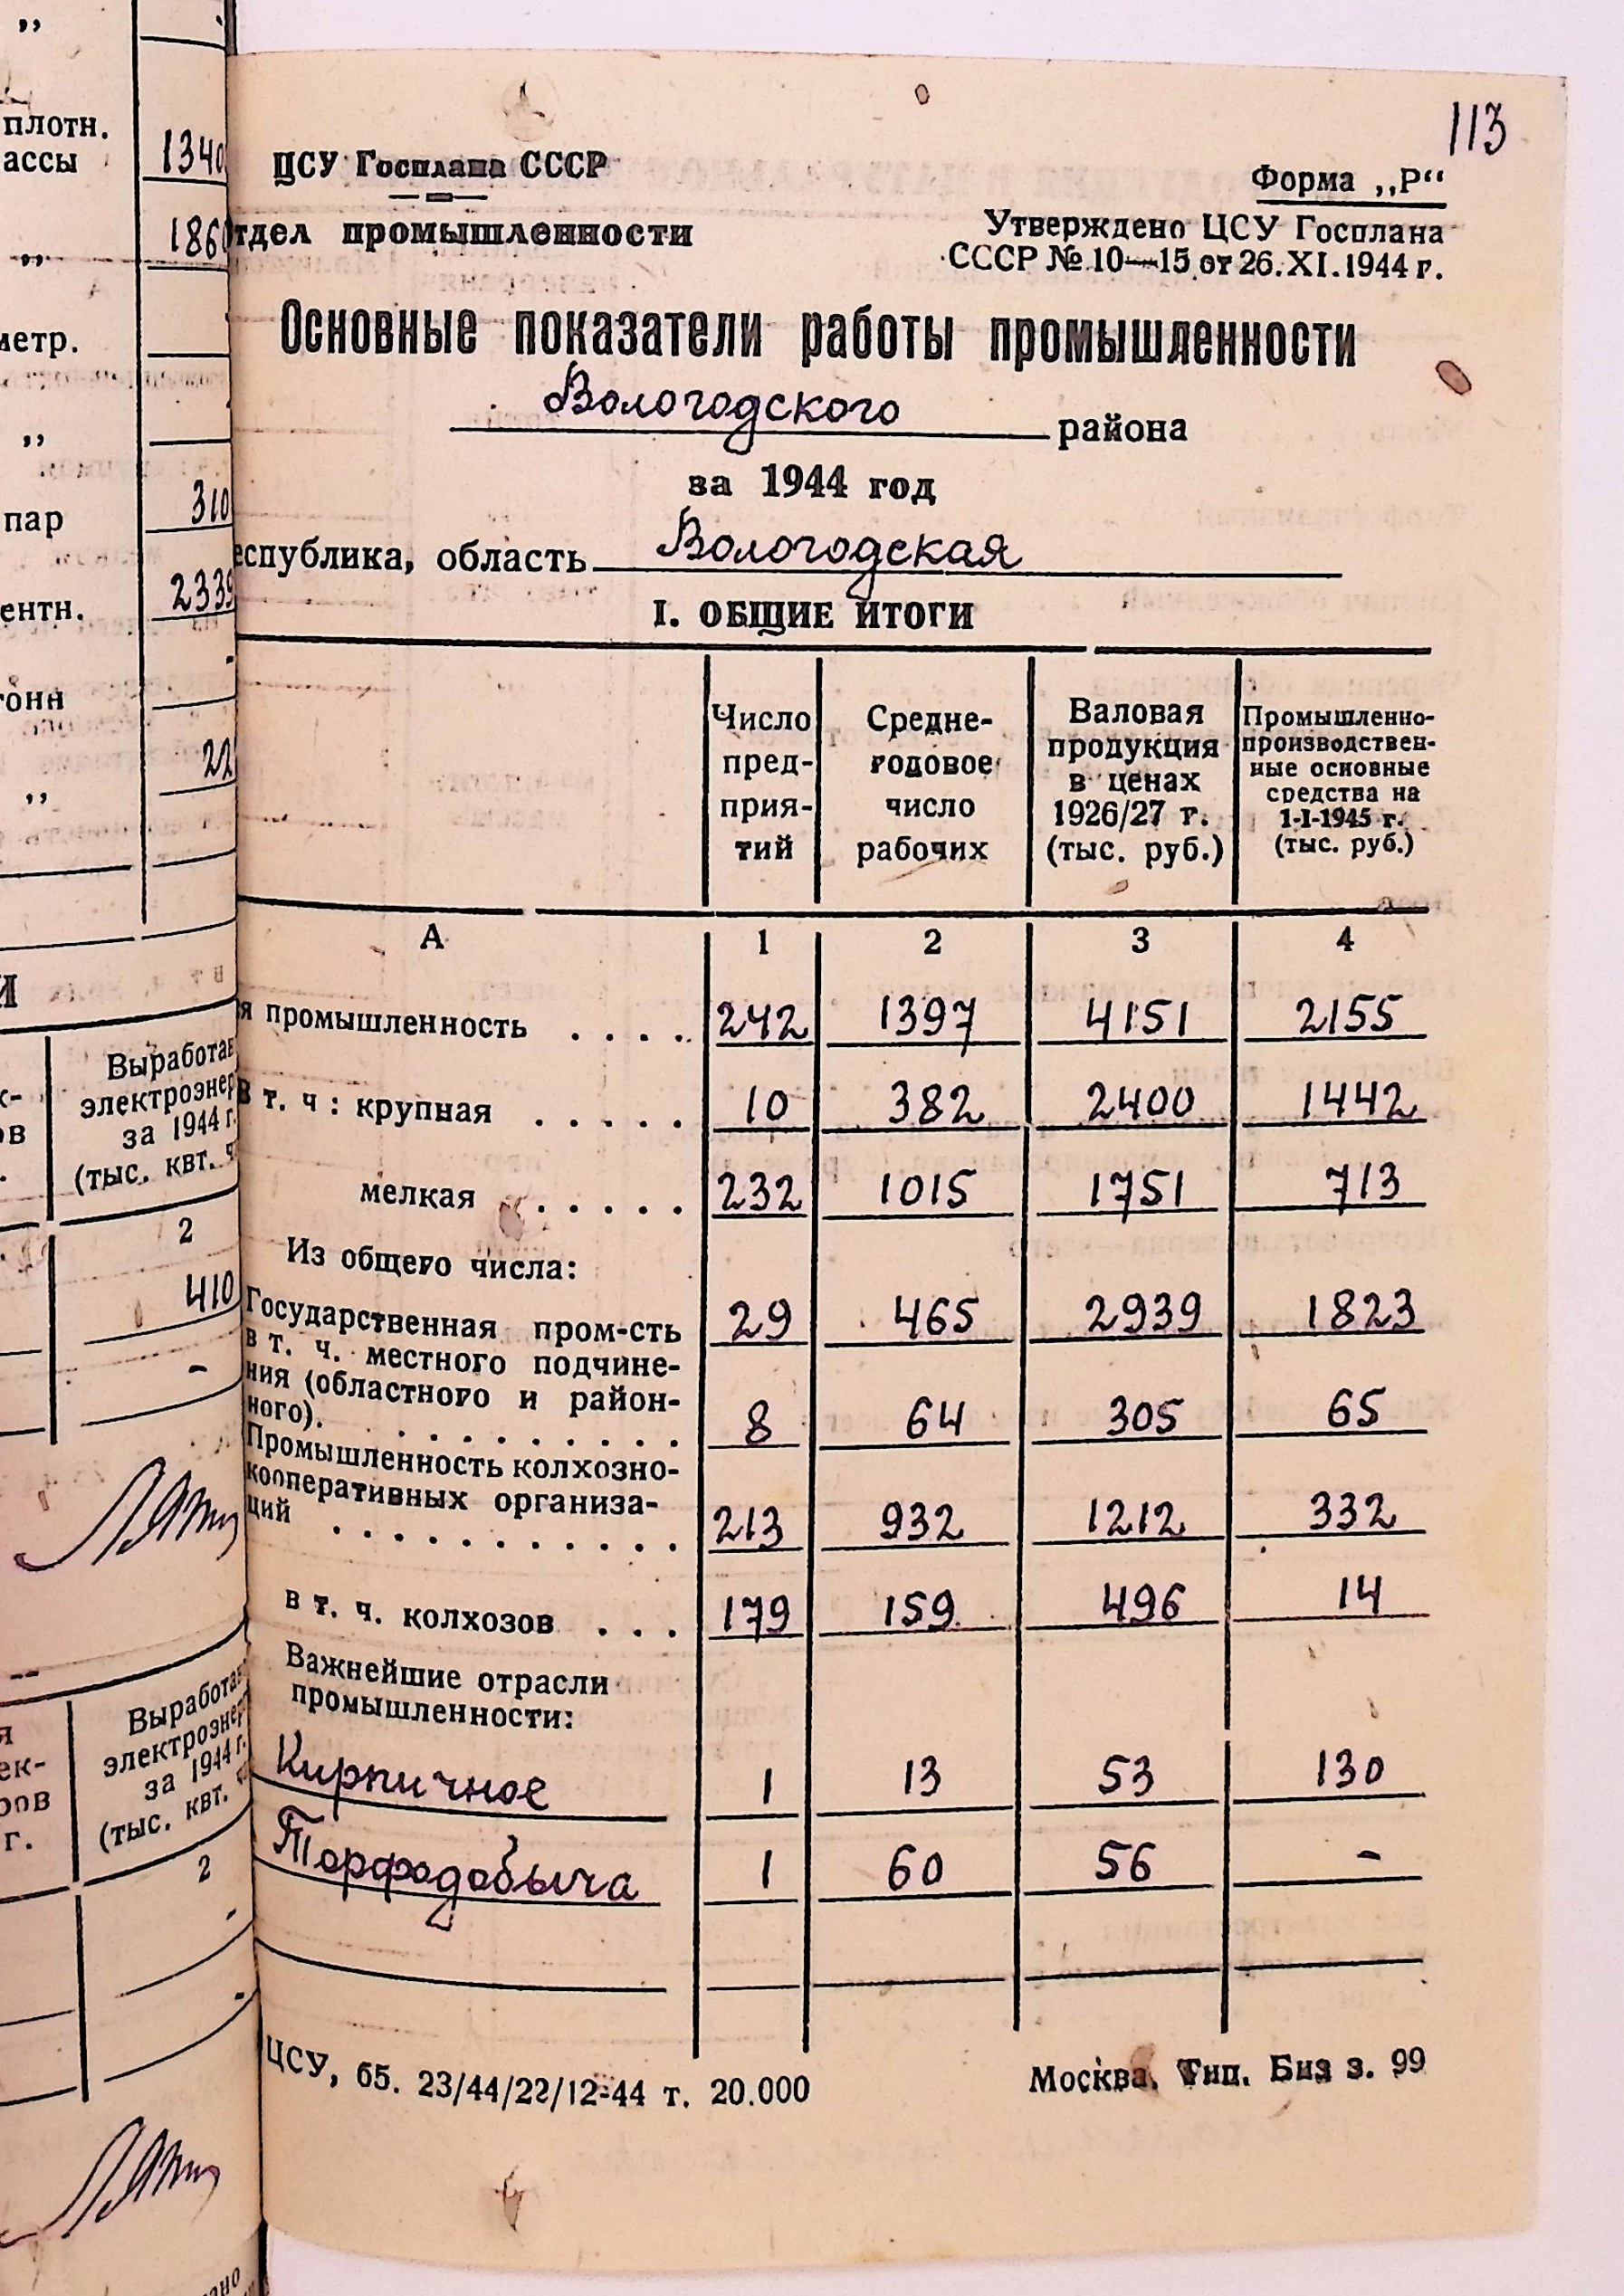 113
ЦСУ Госплана СССР
Форма „Р“
тдел промышленности
Утверждено ЦСУ Госплана
СССР № 10—15 от 26.XI.1944 г.
Основные показатели работы промышленности
Вологодского района
за 1944 год
еспублика, область Вологодская
I. ОБЩИЕ ИТОГИ
Число пред- прия- тий
Средне- годовое число рабочих
Валовая продукция в ценах 1926/27 г. (тыс. руб.)
Промышленно- производствен- ные основные средства на 1-I-1945 г. (тыс. руб.)
А 1 2 3 4
я промышленность . . . . 242 1397 4151 2155
в т. ч : крупная . . . . . 10 382 2400 1442
мелкая . . . . . 232 1015 1751 713
Из общего числа:
Государственная пром-сть 29 465 2939 1823
в т. ч. местного подчине-
ния (областного и район-
ного). . . . . . . . . . 8 64 305 65
Промышленность колхозно-
кооперативных организа-
ций . . . . . . . . . . . 213 932 1212 332
в т. ч. колхозов . . . 179 159 496 14
Важнейшие отрасли
промышленности:
Кирпичное 1 13 53 130
Торфодобыча 1 60 56 -
ЦСУ, б5. 23/44/22/12-44 т. 20.000
Москва. Тип. Биз з. 99
„
плотн.
ассы 1340
„ 1860
метр.
„
пар 310
ентн. 2339
-
тонн
22
„
И
Выработан
электроэнер
за 1944 г.
(тыс. квт. ч
к-
ов
2
410
-
Выработан
электроэнер
за 1944 г.
(тыс. квт.
я
ек-
ров
г.
2
-
-